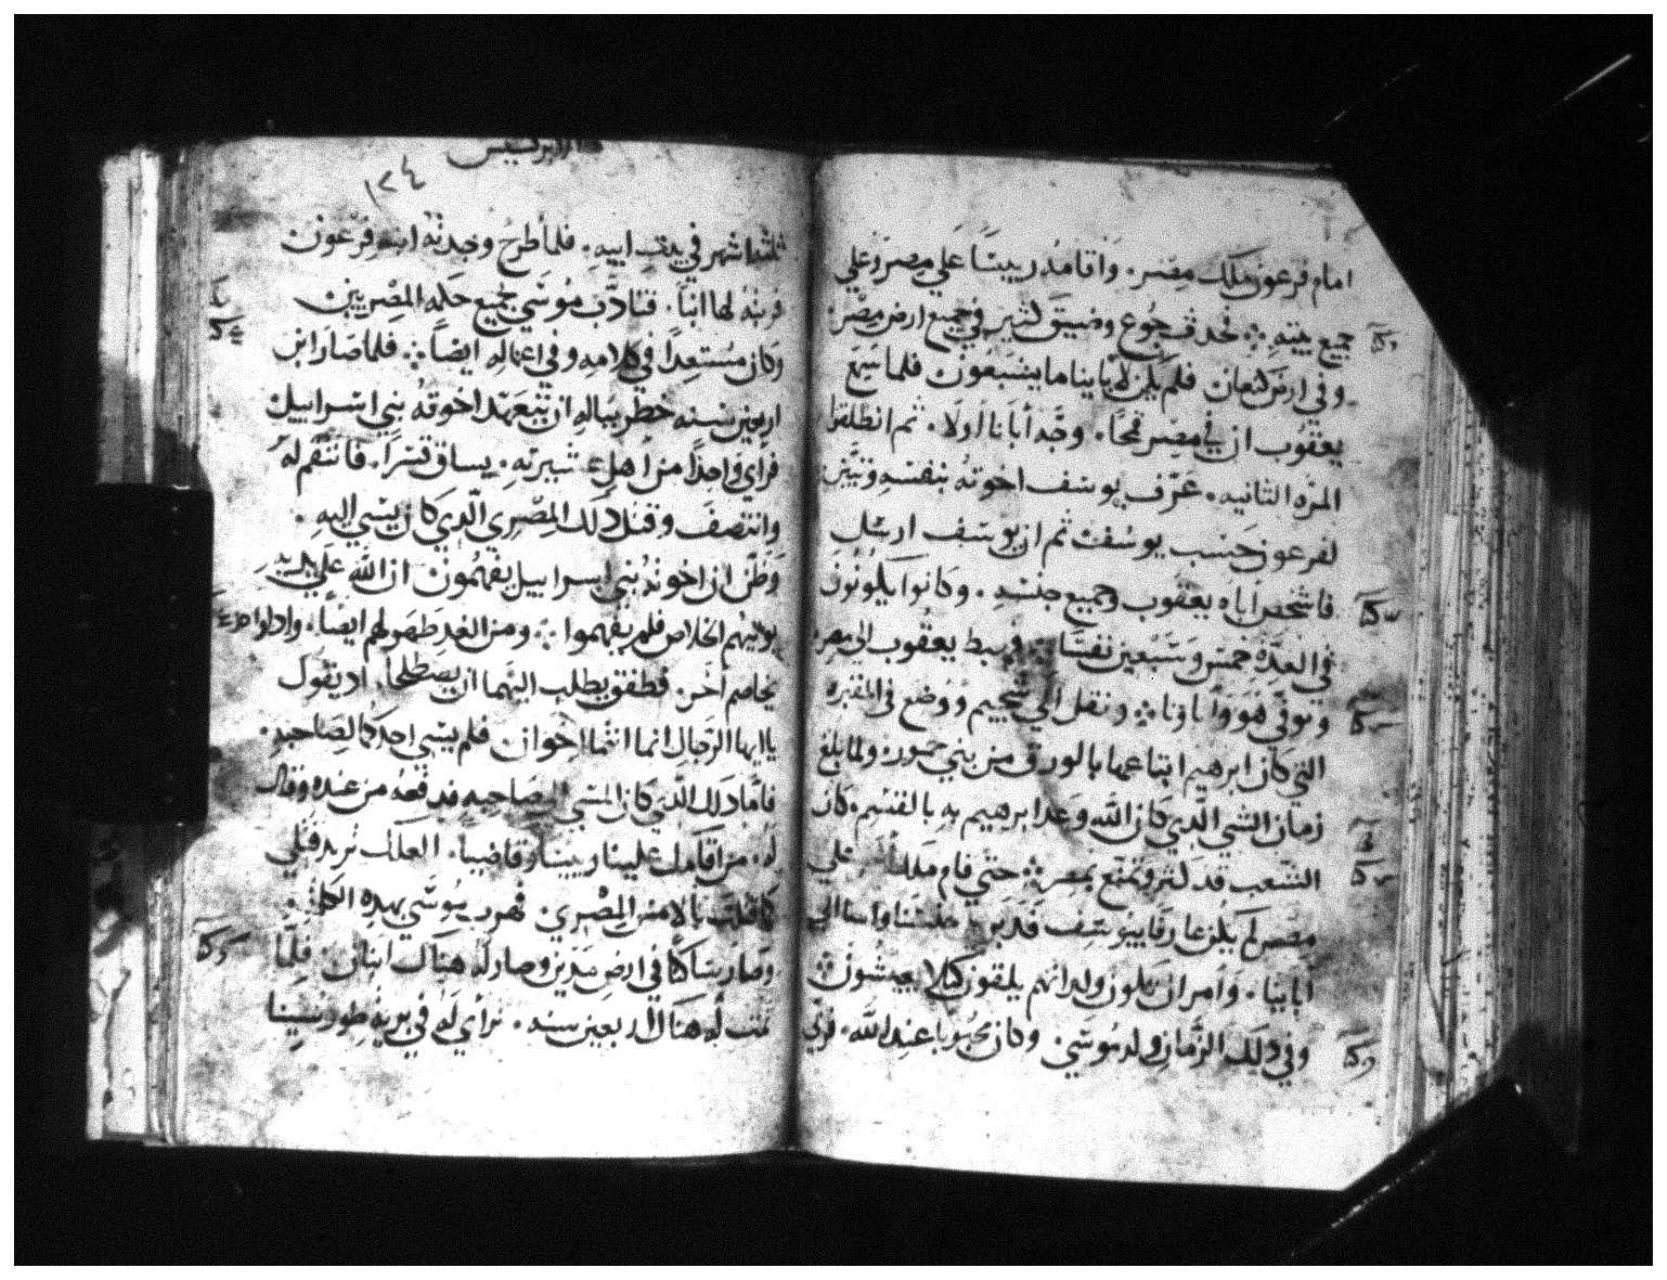 امام فرعون ملك مصر. واقامه رييسًا علي مصر وعلي
جميع بيته ۞ فحدث جوع وضيق كثير في جميع ارض مصر
وفي ارض كنعان فلم يكن لاباينا ما يشبعون فلما سمع
يعقوب ان في مصر قمحًا. وجه أبانا أولًا. ثم انطلقوا
المره الثانيه. عرف يوسف اخوته بنفسه وتبين
لفرعون جنس يوسف ثم ان يوسف ارسل
فاشخص اباه يعقوب وجميع جنسه. وكانوا يكونون
في العده خمس وسبعين نفسًا ۞ وهبط يعقوب الي مصر
وتوفي هو وأباونا ۞ ونقل الي شجيم ووضع في المقبره
التي كان ابرهيم ابتاعها بالورق من بني حمور ولما بلغ
زمان الشي الدي كان الله وعد ابرهيم به بالقسم كان
الشعب قد كثر وتمنع بمصر ۞ حتي قام ملك علي
مصر لم يكن عارفا بيوسف جنسنا واسا الي
ابايينا. وأمر ان يكون ولدانهم يلقون كيلا يعيشون ۞
وفي دلك الزمان ولد موسي وكان محبوبا عند الله. فربي
الابركسيس
١٢٤
ثلثة اشهر في بيت ابيه. فلما طرح وجدته ابنه فرعون
فربته لها ابنًا. فتادب موسي بجميع حكمه المصريين
وكان مستعدًا في كلامه وفي اعماله ايضًا ۞ فلما صار ابن
اربعين سنه خطر بباله ان يتعهد اخوته بني اسراييل
فرأي واحدًا من أهل عشيرته. يساق قسرًا. فانتقم له
وانتصف وقتل دلك المصري الدي كان يسي اليه.
وظن ان اخوته بني اسراييل يفهمون ان الله علي يديه
يوتيهم الخلاص فلم يفهموا ۞ ومن الغد ظهر لهم ايضًا. وادا واحد
يخاصم اخر. فطفق يطلب اليهما ان يصطلحا. اد يقول
يا ايها الرجال انما انتما اخوان فلم يسي احدكما لصاحبه.
فاما دلك الدي كان المسي الي صاحبه فدفعه من عنده وقال
له. من اقامك علينا رييسًا وقاضيا. العلك تريد قتلي
كما قتلت بالامس المصري فهرب موسي بهده الكلمه
وصار ساكنًا في ارض مدين وصار له هناك ابنان. فلما
تمت له هناك اربعين سنه. ترأي له في بريه طور سينا